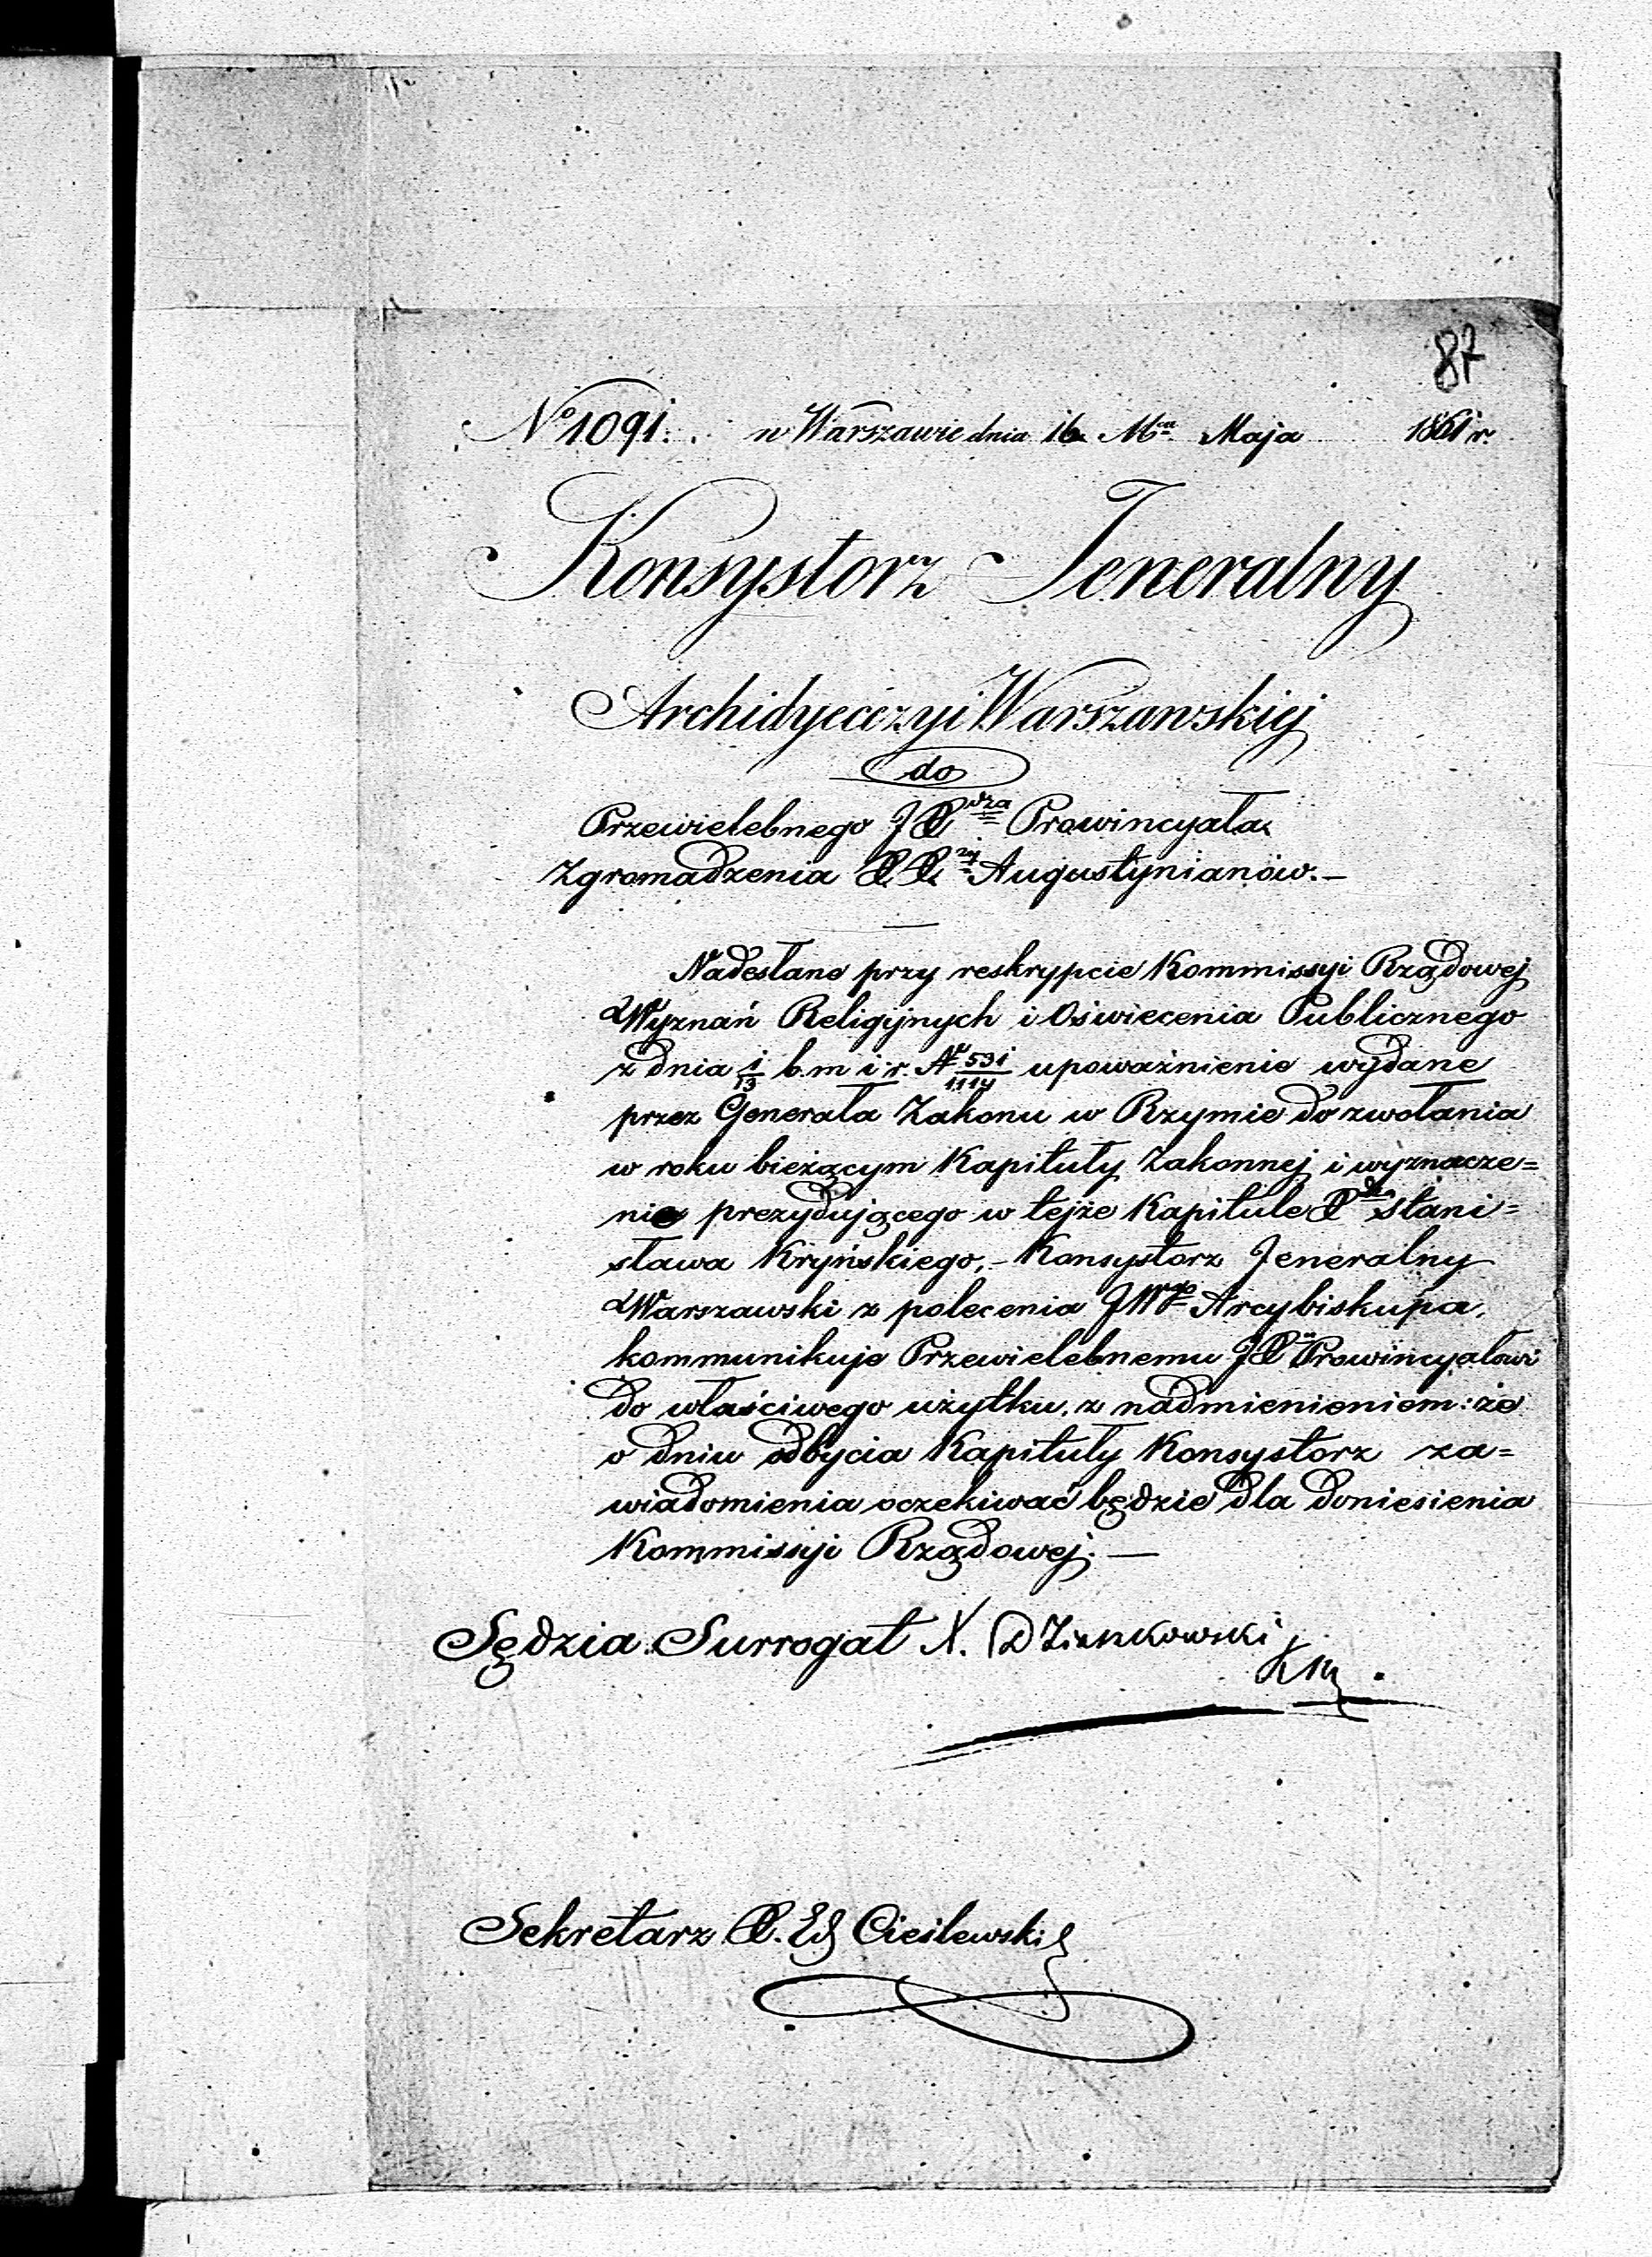 87
No 1091. w Warszawie dnia 16. Mca Maja 1861 r.
Konsystorz Jeneralny
Archidyecezyi Warszawskiej
do
Przewielebnego JXdza Prowincyała
Zgromadzenia XX. Augustynianów.—
Nadesłane przy reskrypcie Kommissyi Rządowej
Wyznań Religijnych i Oświecenia Publicznego
z dnia 1/13 b. m i r. No 531/1114 upoważnienie wydane
przez Generała Zakonu w Rzymie do zwołania
w roku bieżącym Kapituły Zakonnej i wyznacze=
nie prezydującego w tejże Kapitule Xdza Stani=
sława Kryńskiego,– Konsystorz Jeneralny
Warszawski z polecenia JWgo Arcybiskupa,
kommunikuje Przewielebnemu JX Prowincyałowi
do właściwego użytku, z nadmienieniem: że
o dniu odbycia Kapituły Konsystorz za=
wiadomienia oczekiwać będzie dla doniesienia
Kommissyi Rządowej.—
Sędzia Surrogat X. Dzienkowski
Sekretarz X. Ed Cieślewski